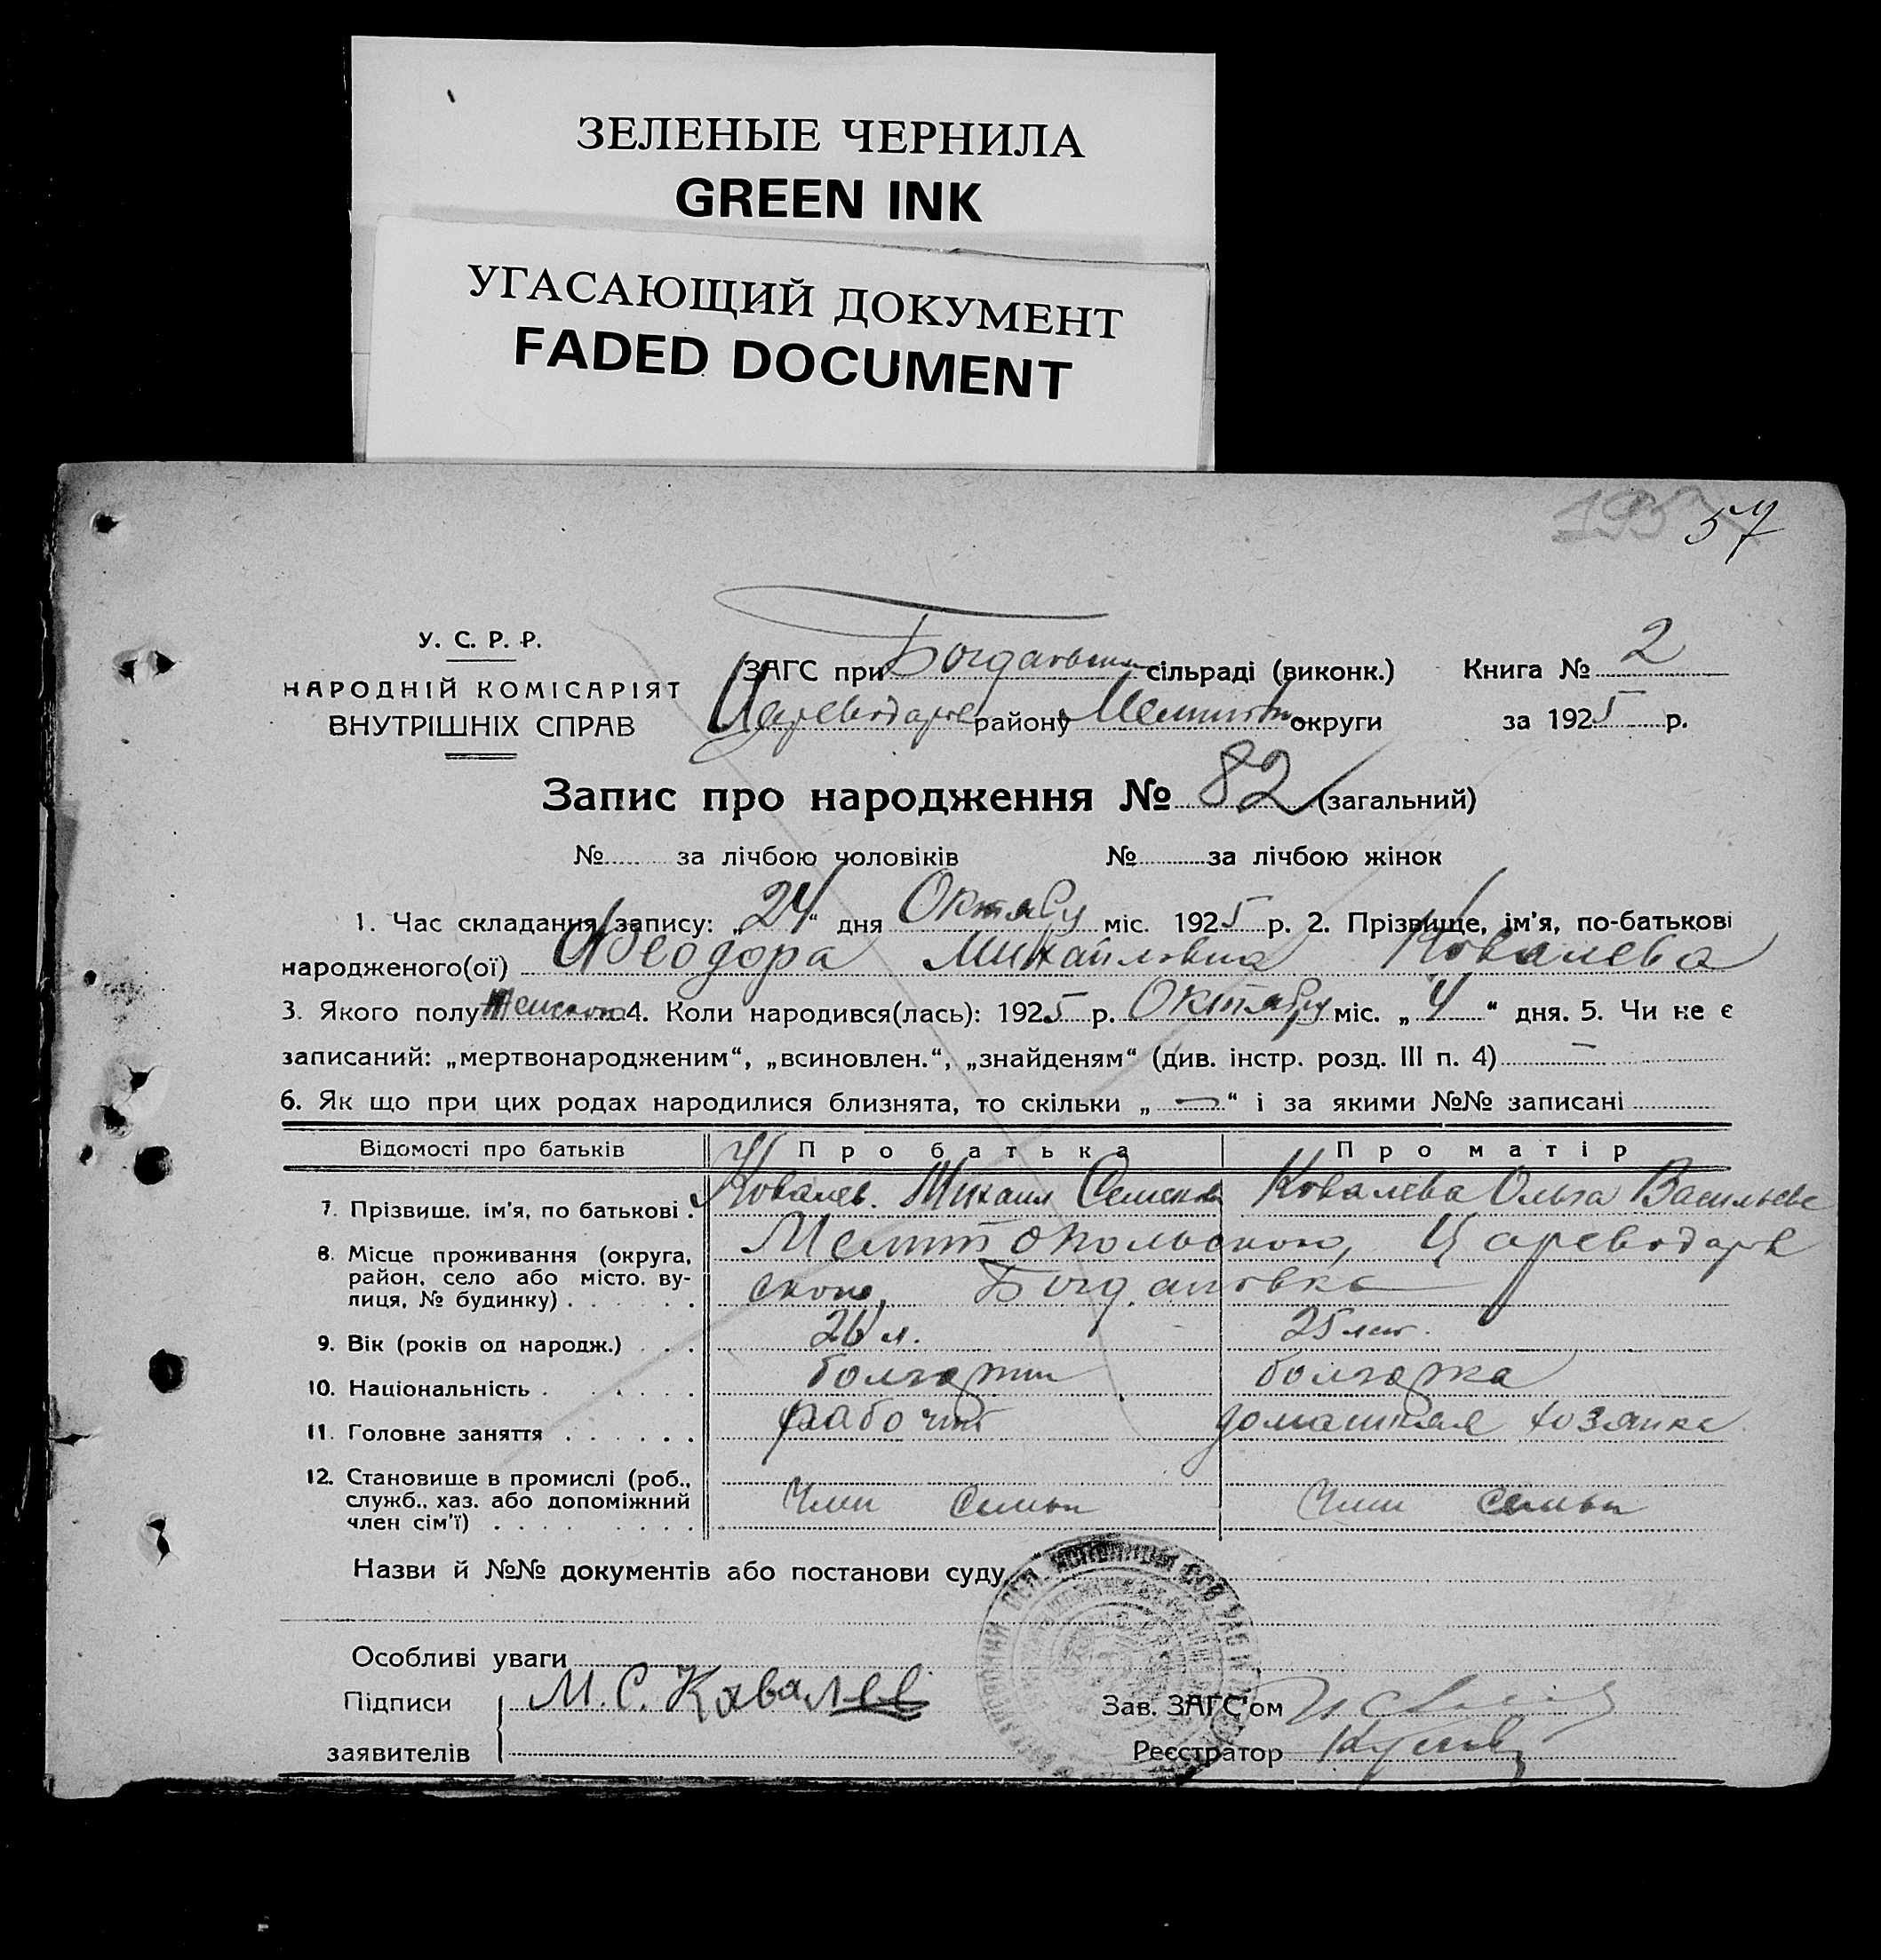 ЗЕЛЕНЫЕ ЧЕРНИЛА
GREEN INK
УГАСАЮЩИЙ ДОКУМЕНТ
FADED DOCUMENT
57
У. С. Р. Р.
НАРОДНІЙ КОМІСАРІЯТ
ВНУТРІШНІХ СПРАВ
ЗАГС при сільраді (виконк.) Книга № 2
району округи за 1925 р.
Запис про народження № 82 (загальний)
№ за лічбою чоловіків № за лічбою жінок
1. Час складання запису: „24“ дня Октября міс. 1925 р. 2. Прізвище, ім'я, по-батькові
народженого(ої) Феодора Михайловна Ковалева
3. Якого полу женского 4. Коли народився(лась): 1925 р. Октября міс. „4“ дня. 5. Чи не є
записаний: „мертвонародженим“, „всиновлен.“, „знайденям“ (див. інстр. розд. III п. 4) —
6. Як що при цих родах народилися близнята, то скільки „—“ і за якими №№ записані
Відомості про батьків Про батька Про матір
7. Прізвище, ім'я, по батькові . Ковалев. Михаил Семенов Ковалева Ольга Васильевн
8. Місце проживання (округа, район, село або місто, вулиця, № будинку) Мелитопольского, Цареводаров
ского, Богдановка
9. Вік (років од народж.) 26 л. 25 лет.
10. Національність болгарин болгарка
11. Головне заняття рабочий домашняя хозяика
12. Становище в промислі (роб., служб., хаз. або допоміжний член сім'ї) Член семьи Член семьи
Назви й №№ документів або постанови суду
Особливі уваги
Підписи М. С. Кавалев Зав. ЗАГС'ом
заявителів Реєстратор